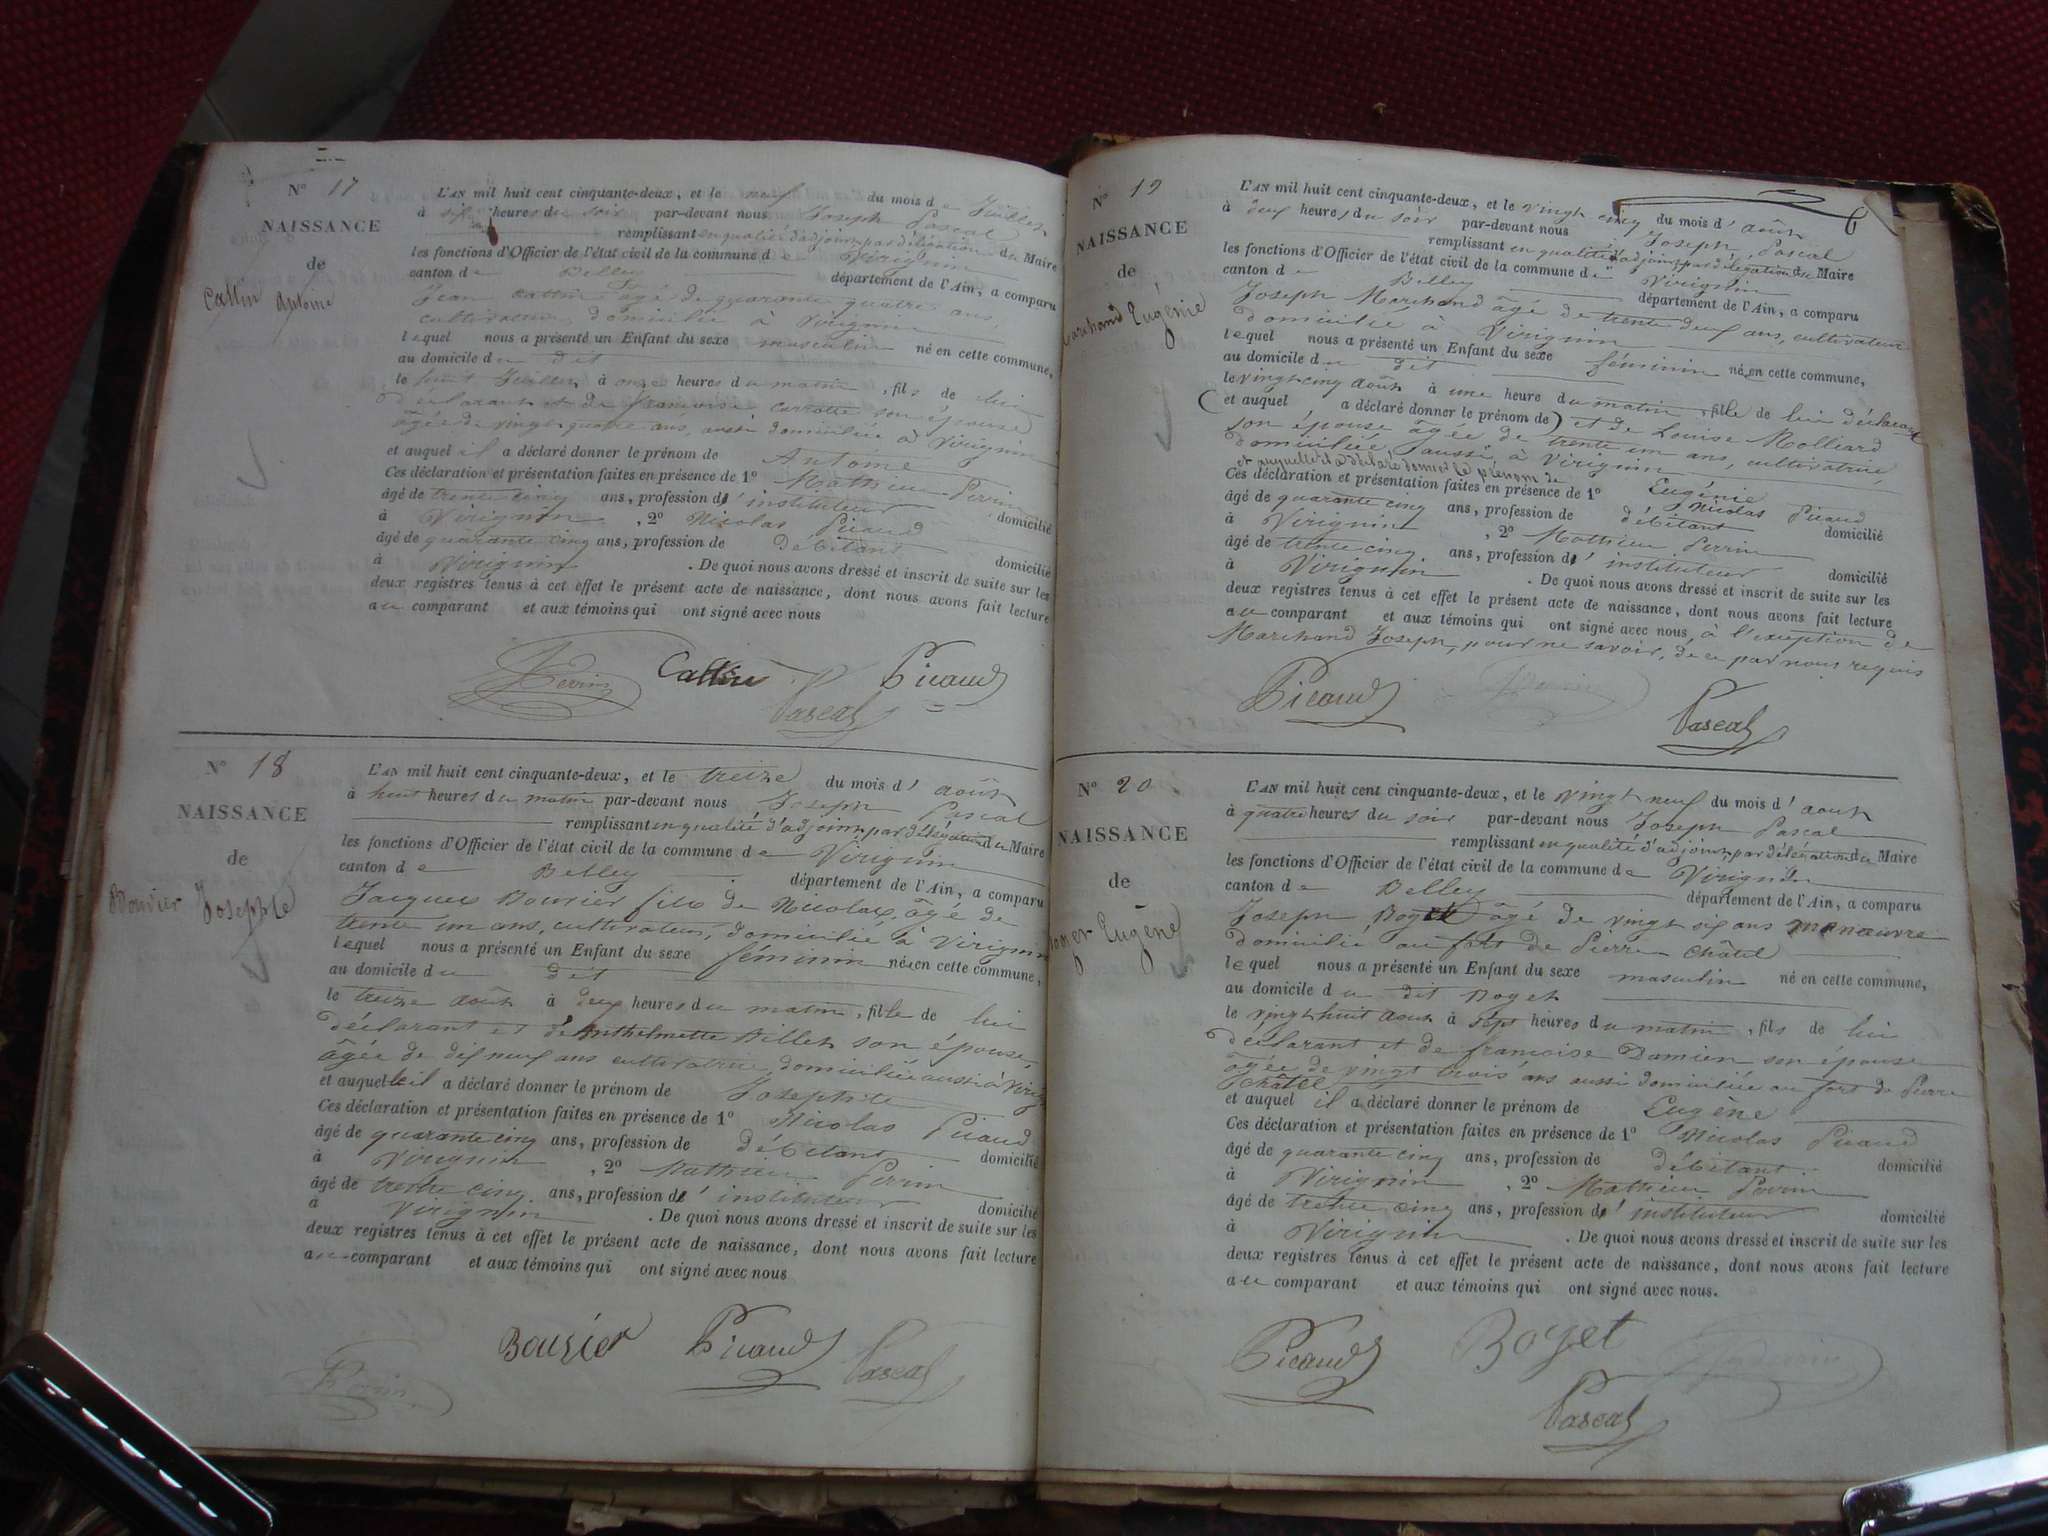 N° 17
NAISSANCE
de
Cattin Antoine
L'AN mil huit cent cinquante-deux, et le neuf du mois de Juillet
à six heures du soir par-devant nous Joseph Pascal
remplissant en qualité d'adjoint par délégation du Maire
les fonctions d'Officier de l'état civil de la commune de Virignin
canton de Belley département de l'Ain, a comparu
Jean Cattin âgé de quarante quatre ans,
cultivateur, domicilié à Virignin
lequel nous a présenté un Enfant du sexe masculin né en cette commune,
au domicile du dit
le huit Juillet à onze heures du matin, fils de lui
déclarant et de françoise son épouse
âgée de vingt quatre ans, aussi domiciliée à Virignin
et auquel il a déclaré donner le prénom de Antoine
Ces déclaration et présentation faites en présence de 1° Mathieu Perrin
âgé de trente cinq ans, profession d'instituteur domicilié
à Virignin, 2° Nicolas Picaud
âgé de quarante cinq ans, profession de débitant domicilié
à Virignin. De quoi nous avons dressé et inscrit de suite sur les
deux registres tenus à cet effet le présent acte de naissance, dont nous avons fait lecture
au comparant et aux témoins qui ont signé avec nous
Perrin Cattin Picaud
Pascal
N° 18
NAISSANCE
de
Bouvier Josephte
L'AN mil huit cent cinquante-deux, et le treize du mois d'août
à huit heures du matin par-devant nous Joseph Pascal
remplissant en qualité d'adjoint par délégation du Maire
les fonctions d'Officier de l'état civil de la commune de Virignin
canton de Belley département de l'Ain, a comparu
Jacques Bouvier fils de Nicolas, âgé de
trente un ans, cultivateur, domicilié à Virignin
lequel nous a présenté un Enfant du sexe féminin née en cette commune,
au domicile du dit
le treize août à deux heures du matin, fille de lui
déclarant et de Anthelmette Billet son épouse
âgée de dix neuf ans cultivatrice, domiciliée aussi à Virig
et auquelle il a déclaré donner le prénom de Josephte
Ces déclaration et présentation faites en présence de 1° Nicolas Picaud
âgé de quarante cinq ans, profession de débitant domicilié
à Virignin, 2° Mathieu Perrin
âgé de trente cinq ans, profession d'instituteur domicilié
à Virignin. De quoi nous avons dressé et inscrit de suite sur les
deux registres tenus à cet effet le présent acte de naissance, dont nous avons fait lecture
au comparant et aux témoins qui ont signé avec nous
Bouvier Picaud Pascal
Perrin
N° 19
NAISSANCE
de
Marchand Eugénie
L'AN mil huit cent cinquante-deux, et le vingt cinq du mois d'août
à deux heures du soir par-devant nous Joseph Pascal
remplissant en qualité d'adjoint par délégation du Maire
les fonctions d'Officier de l'état civil de la commune de Virignin
canton de Belley département de l'Ain, a comparu
Joseph Marchand âgé de trente deux ans, cultivateur
domicilié à Virignin
lequel nous a présenté un Enfant du sexe féminin née en cette commune,
au domicile du dit
le vingt cinq août à une heure du matin, fille de lui déclarant
(et auquel a déclaré donner le prénom de) et de Louise Molliard
son épouse âgée de trente un ans, cultivatrice,
domiciliée aussi à Virignin
et auquelle il a déclaré donner le prénom de Eugénie
Ces déclaration et présentation faites en présence de 1° Nicolas Picaud
âgé de quarante cinq ans, profession de débitant domicilié
à Virignin, 2° Mathieu Perrin
âgé de trente cinq ans, profession d'instituteur domicilié
à Virignin. De quoi nous avons dressé et inscrit de suite sur les
deux registres tenus à cet effet le présent acte de naissance, dont nous avons fait lecture
au comparant et aux témoins qui ont signé avec nous, à l'exception de
Marchand Joseph, pour ne savoir, de ce par nous requis
Picaud Perrin Pascal
N° 20
NAISSANCE
de
Eugène
L'AN mil huit cent cinquante-deux, et le vingt neuf du mois d'août
à quatre heures du soir par-devant nous Joseph Pascal
remplissant en qualité d'adjoint par délégation du Maire
les fonctions d'Officier de l'état civil de la commune de Virignin
canton de Belley département de l'Ain, a comparu
Joseph Boyet âgé de vingt six ans manœuvre
domicilié au fort de Pierre Châtel
lequel nous a présenté un Enfant du sexe masculin né en cette commune,
au domicile du dit Boyet
le vingt huit août à sept heures du matin, fils de lui
déclarant et de françoise Damien son épouse
âgée de vingt trois ans aussi domiciliée au fort de Pierre
Châtel
et auquel il a déclaré donner le prénom de Eugène
Ces déclaration et présentation faites en présence de 1° Nicolas Picaud
âgé de quarante cinq ans, profession de débitant domicilié
à Virignin, 2° Mathieu Perrin
âgé de trente cinq ans, profession d'instituteur domicilié
à Virignin. De quoi nous avons dressé et inscrit de suite sur les
deux registres tenus à cet effet le présent acte de naissance, dont nous avons fait lecture
au comparant et aux témoins qui ont signé avec nous.
Picaud Boyet Perrin
Pascal